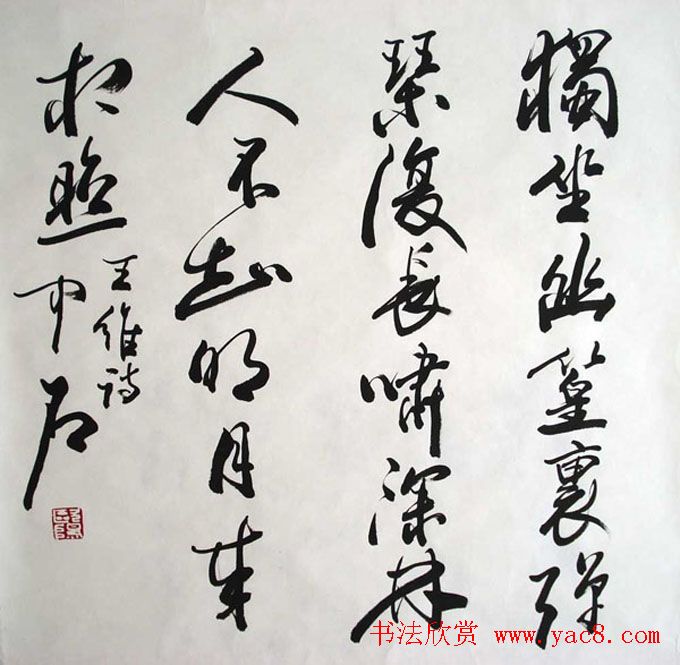 獨坐幽篁裏弹
琴復長嘯深林
人不知明月来
相照
王維詩
中石
书法欣赏 www.yac8.com